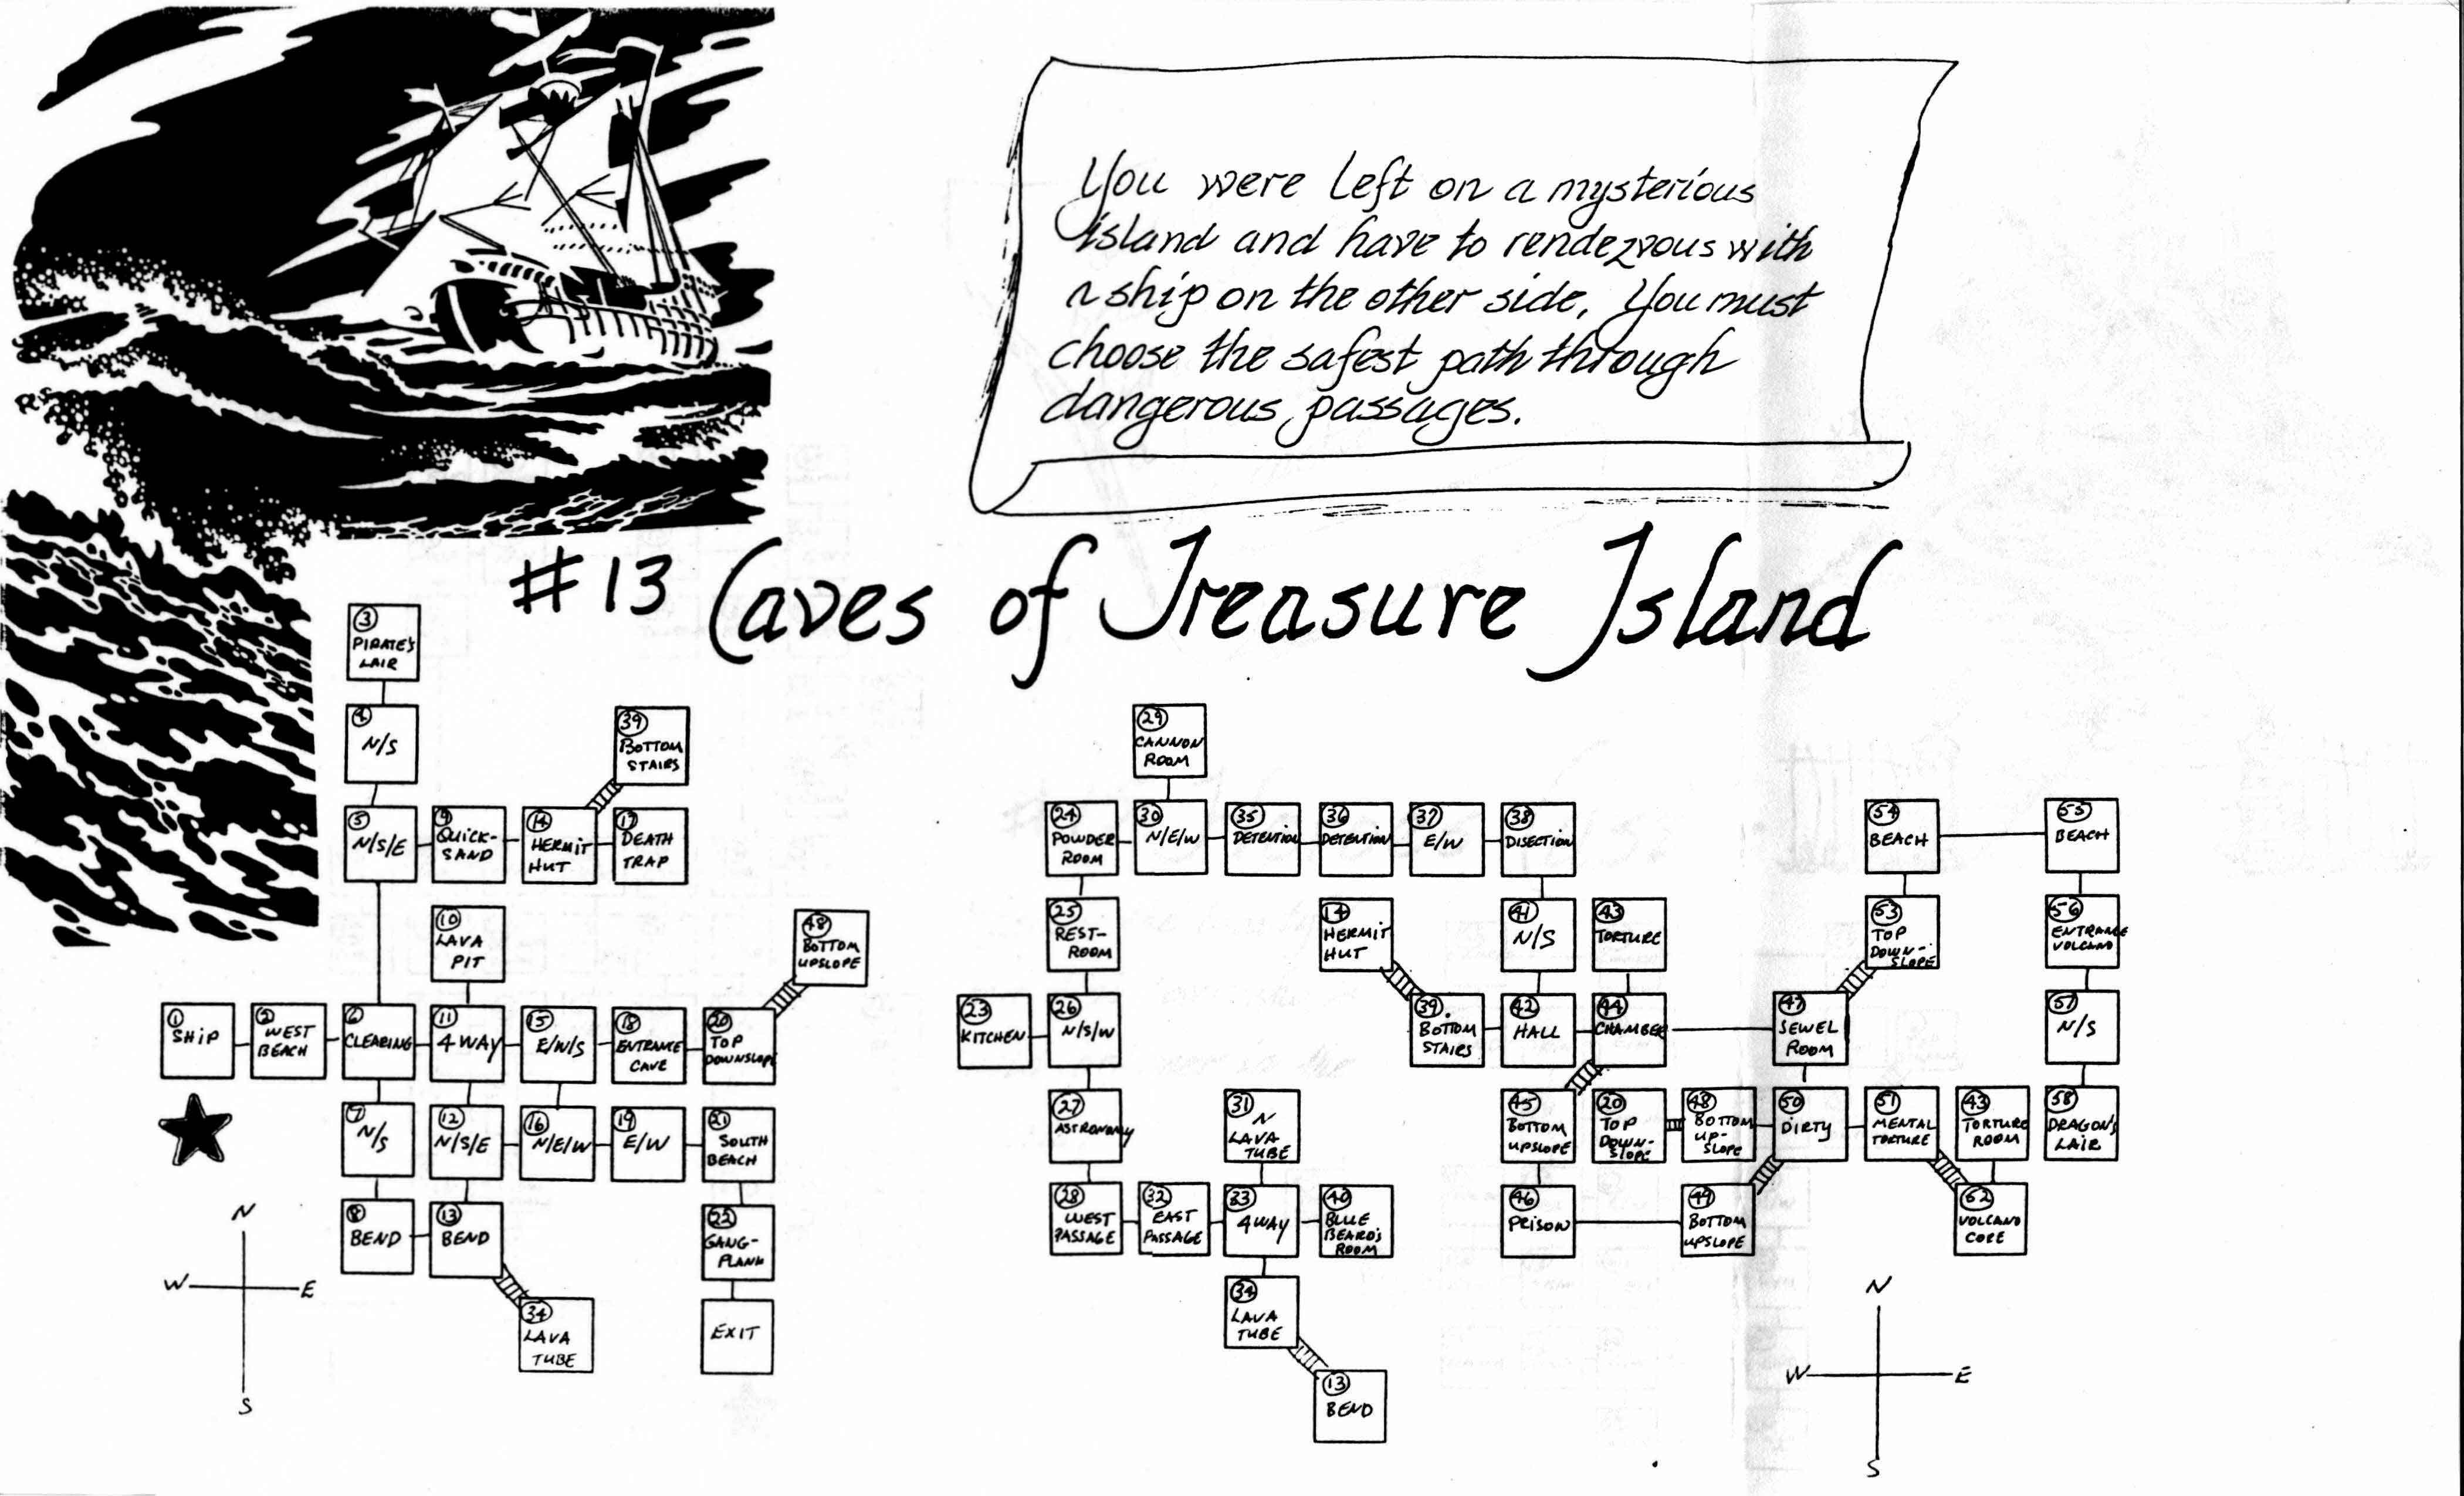 You were left on a mysterious
island and have to rendezvous with
a ship on the other side, You must
choose the safest path through
dangerous passages.
#13 Caves of Treasure Island
3 PIRATE'S LAIR
4 N/S
39 BOTTOM STAIRS
5 N/S/E
9 QUICK-SAND
14 HERMIT HUT
17 DEATH TRAP
10 LAVA PIT
48 BOTTOM UPSLOPE
1 SHIP
2 WEST BEACH
6 CLEARING
11 4 WAY
15 E/W/S
18 ENTRANCE CAVE
20 TOP DOWNSLOPE
7 N/S
12 N/S/E
16 N/E/W
19 E/W
21 SOUTH BEACH
8 BEND
13 BEND
22 GANG-PLANK
34 LAVA TUBE
EXIT
N
W E
S
29 CANNON ROOM
24 POWDER ROOM
30 N/E/W
35 DETENTION
36 DETENTION
37 E/W
38 DISECTION
54 BEACH
55 BEACH
25 REST-ROOM
14 HERMIT HUT
41 N/S
43 TORTURE
53 TOP DOWN-SLOPE
56 ENTRANCE VOLCANO
23 KITCHEN
26 N/S/W
39 BOTTOM STAIRS
42 HALL
44 CHAMBER
47 SEWEL ROOM
57 N/S
27 ASTRONOMY
31 N LAVA TUBE
45 BOTTOM UPSLOPE
20 TOP DOWN-SLOPE
48 BOTTOM UP-SLOPE
50 DIRTY
51 MENTAL TORTURE
43 TORTURE ROOM
58 DRAGON'S LAIR
28 WEST PASSAGE
32 EAST PASSAGE
33 4 WAY
40 BLUE BEARD'S ROOM
46 PRISON
49 BOTTOM UPSLOPE
52 VOLCANO CORE
34 LAVA TUBE
13 BEND
N
W E
S